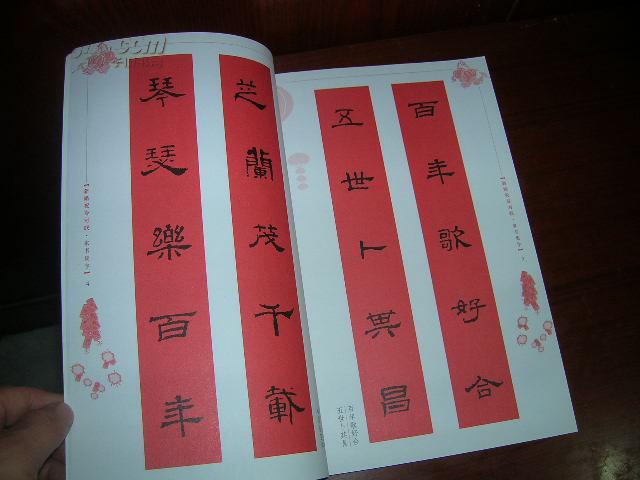 芝蘭茂千載
琴瑟樂百年
百年歌好合
五世卜其昌
百年歌好合
五世卜其昌